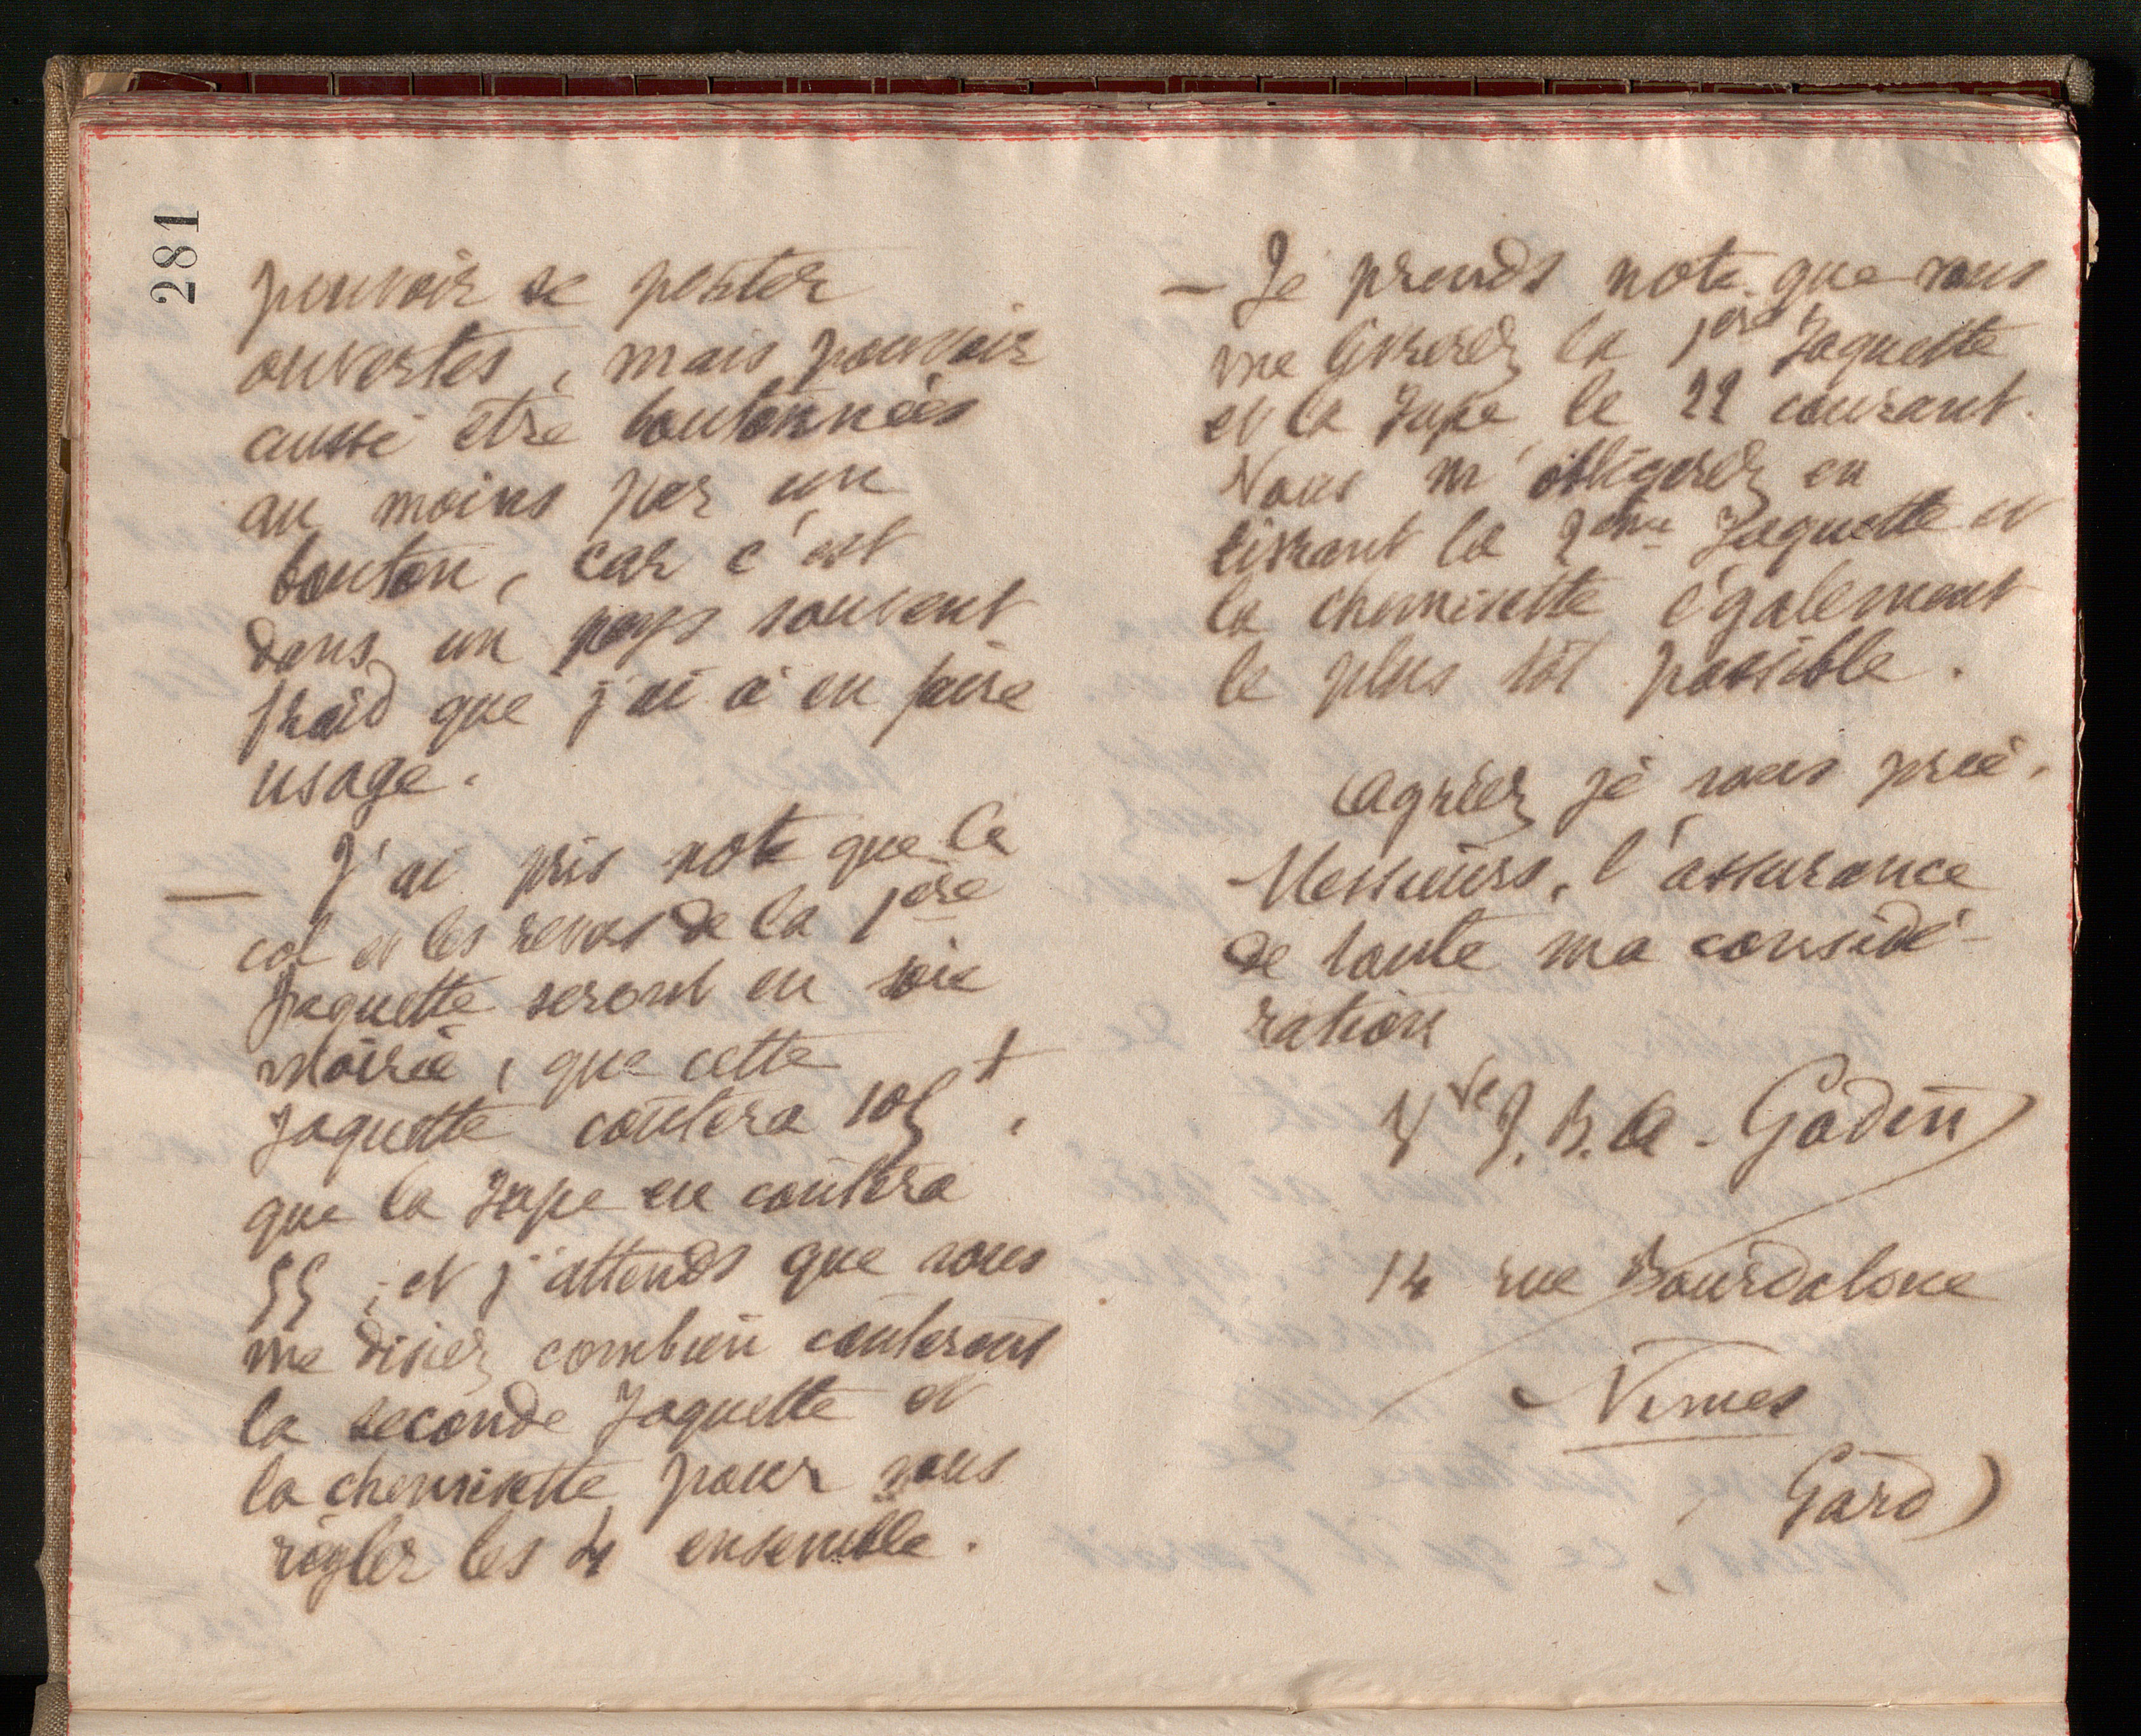 281
pouvoir se porter
ouvertes, mais pouvoir
aussi être boutonnées
au moins par un
bouton, car c'est
dans un pays souvent
froid que j'ai à en faire
usage.
— J'ai pris note que le
col et les revers de la 1ère
Jaquette seront en soie
moirée, que cette
Jaquette coûtera 105 f,
que la Jupe en coûtera
55 ; et j'attends que vous
me disiez combien coûteront
la seconde Jaquette et
la chemisette pour vous
régler les 4 ensemble.
— Je prends note que vous
me livrerez la 1ère Jaquette
et la Jupe le 22 courant.
Vous m'obligerez en
livrant la 2ème Jaquette et
la chemisette également
le plus tôt possible.
Agréez je vous prie,
Messieurs, l'assurance
de toute ma considé-
ration
Vve J. B. A. Godin
14 rue Bourdaloue
Nimes
Gard)